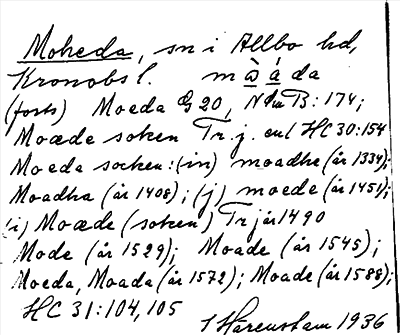 Moheda, sn i Allbo hd,
Kronobs l. mòáda
(forts) Moeda G 20, NdmB: 174;
Moæde soken Tr. j. enl HC 30:154
Moeda socken: (in) moadhe (år 1334);
Moadha (år 1408); (j) moede (år 1451);
(i) Moæde (soken) Tr j år 1490
Mode (år 1529); Moade (år 1545);
Moeda, Moada (år 1572); Moade (år 1588);
HC 31:104, 105
I Härenstam 1936